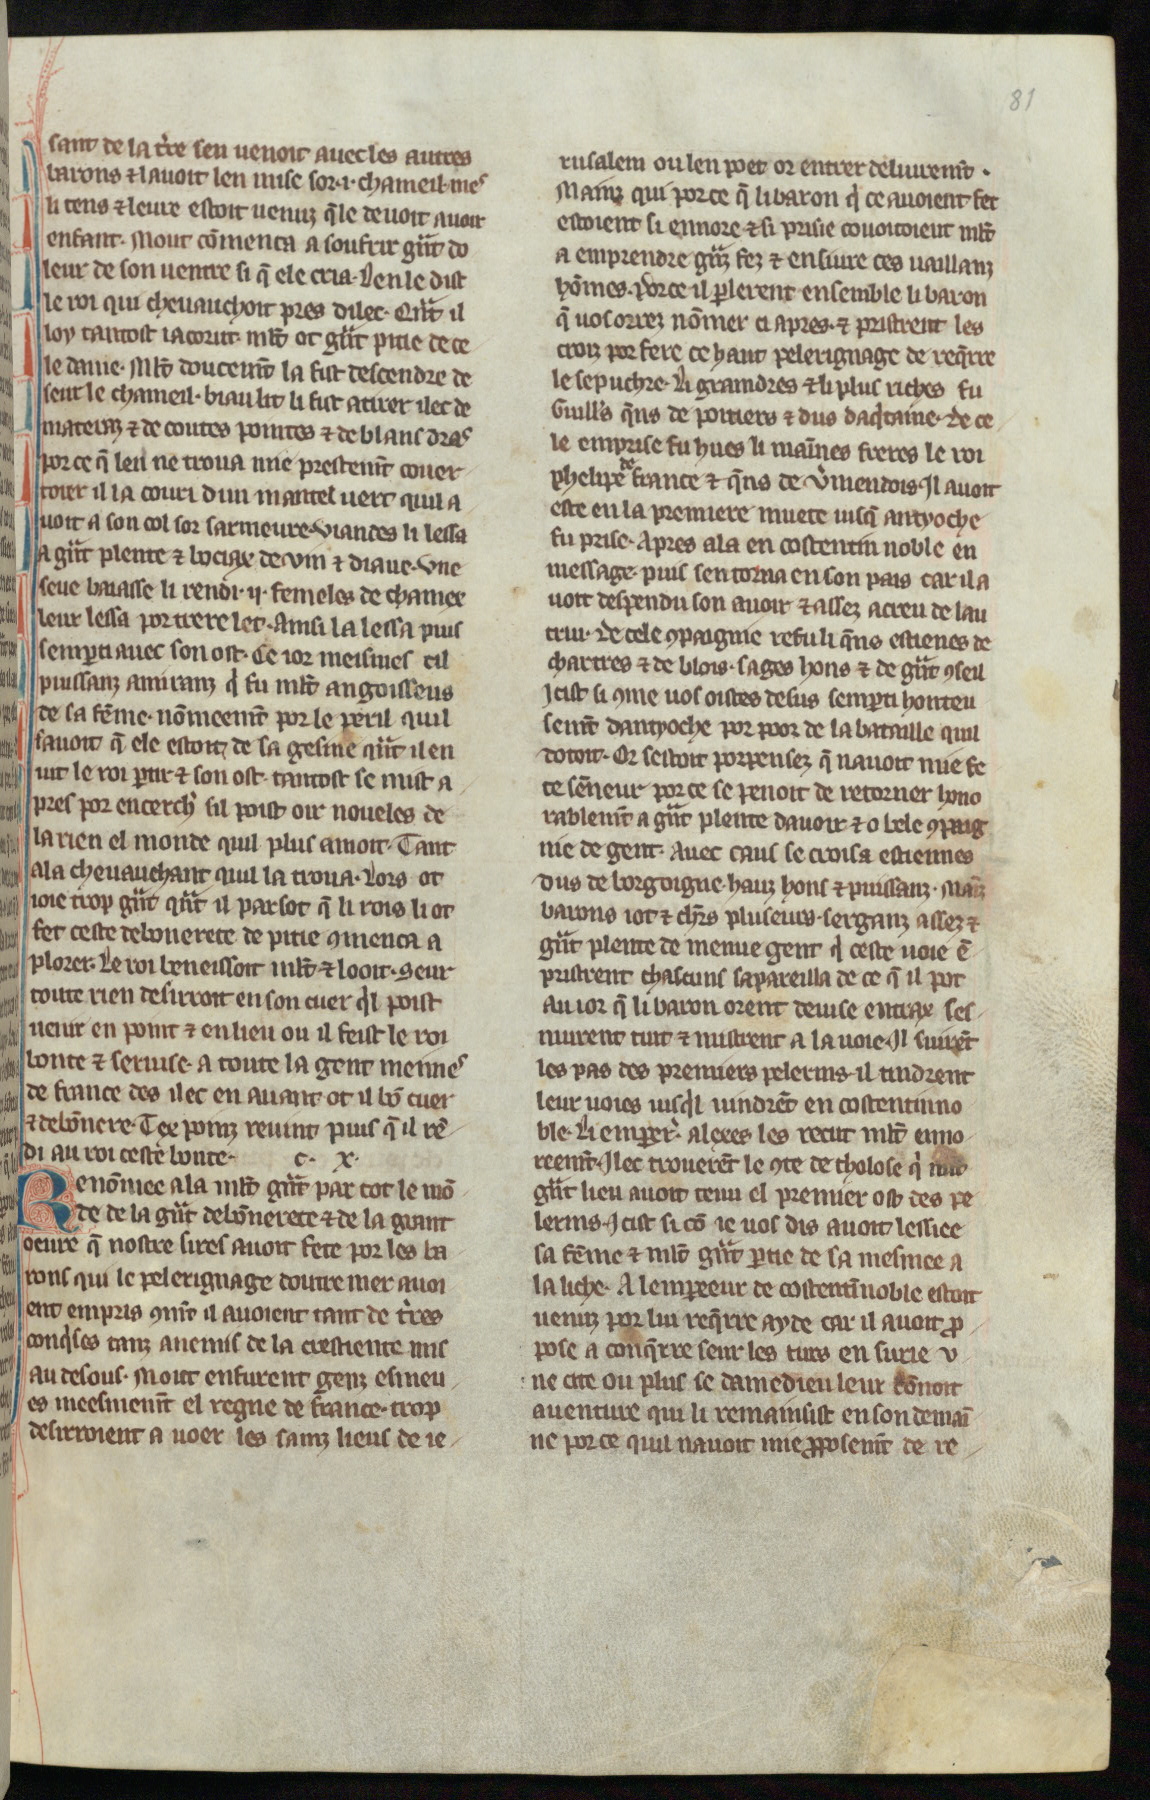 81
sant de la t̾re sen uenoit auecles autres
barons ⁊ lauoit len mise sor .i. chameil. mes
li tens ⁊ leure estoit uenuz q̄le deuoit auoir
enfant. Mout cōmenca a soufrir gͣnt do
leur de son uentre si q̄ ele cria. Len le dist
le roi qui cheuauchoit pres dilec. Qͣnt il
loy tantost iacorut. mlt̄ ot gͣnt pitie de ce
le dame. Mlt̄ doucemt̄ la fist descendre de
seur le chameil. biau lit li fist atirer ilec de
materaz ⁊ de coutes pointes ⁊ de blans dras
por ce q̄ len ne troua mie prestemt̄ couer
toier il la couuri dun mantel uert quil a
uoit a son col sor sarmeure. Viandes li lessa
a gͣnt plente ⁊ bociax de vin ⁊ diaue. Vne
seue baiasse li rendi .ij. femeles de chamex
leur lessa por trere let. Ainsi la lessa puis
semp̱ti auec son ost. Ce ior meismes cil
puissanz amiranz qͥ fu mlt̄ angoisseus
de sa fēme. nōmeemt̄ por le peril quil
sauoit q̄ ele estoit de sa gesine qͣnt il en
uit le roi p̱tir ⁊ son ost. tantost se mist a
pres por encerch̾ sil poist oir noueles de
la rien el monde quil plus amoit. Tant
ala cheuauchant quil la troua. Lors ot
ioie trop gͣnt qͣnt il par sot q̄ li rois li ot
fet ceste debonerete de pitie ꝯmenca a
plorer. Le roi beneissoit mlt̄ ⁊ looit. Seur
toute rien desirroit en son cuer qͥl poist
uenir en point ⁊ en lieu ou il feist le roi
bonte ⁊ seruise. a toute la gent meimes
de france des ilec en auant ot il bō cuer
⁊ debōnere. Tex poinz reuint puis q̄ il rē
di au roi ceste bonte. c. x.
Renōmee ala mlt̄ gͣnt par tot le mō
de de la gͣnt debōnerete ⁊ de la grant
oeure q̄ nostre sires auoit fete por les ba
rons qui le pelerignage doutre mer auoi
ent empris ꝯmt̄ il auoient tant de t̾res
conqͥses tanz anemis de la crestiente mis
au desous. Mout en furent genz esmeu
es meesmemt̄ el regne de france. trop
desirroient a uoer les sainz lieus de ie
rusalem ou len poet or entrer deliuremt̄.
Mainz qui por ce q̄ li baron qͥ ce auoient fet
estoient si ennore ⁊ si prisie couoitoient mlt̄
a emprendre gͣnz fez ⁊ ensiure ces uaillanz
hōmes. Por ce il p̱lerent ensemble li baron
q̄ uos orrez nōmer ci apres. ⁊ pristrent les
croiz por fere ce haut pelerignage de reqͤrre
le sepuchre. Li graindres ⁊ li plus riches fu
Guill's qͥns de poitiers ⁊ dus daqͥtaine. De ce
le emprise fu hues li mainnes freres le roi
phelipe de france ⁊ qͥns de Vmendois. Il auoit
este en la premiere muete iusqͣ antyoche
fu prise. Apres ala en costentin noble en
message. puis sen torna en son pais car il a
uoit despendu son auoir ⁊ assez acreu de lau
trui. De cele ꝯpaignie refu li qͥns estienes de
chartres ⁊ de blois. sages hons ⁊ de gͣnt ꝯseil
Icist si ꝯme uos oistes desus semp̱ti honteu
semt̄ dantyoche por poor de la bataille quil
dotoit. Or sestoit porpensez q̄ nauoit mie fe
te sēneur por ce se penoit de retorner hono
rablemt̄ a gͣnt plente dauoir ⁊ o bele ꝯpaig
nie de gent. Auec caus se croisa estiennes
dus de borgoigne. hauz hons ⁊ puissanz. Mainz
barons iot ⁊ ch̾rs pluseurs. serganz assez ⁊
gͣnt plente de menue gent qͥ ceste uoie ē
pristrent chascuns sapareilla de ce q̄ il pot
Au ior q̄ li baron orent deuise entrax ses
murent tuit ⁊ mistrent a la uoie. Il suirēt
les pas des premiers pelerins. il tindrent
leur uoies iusqͥl uindrēt en costentinno
ble. Li emp̱er̾. alexes les recut mlt̄ enno
reemt̄. Ilec trouerēt le ꝯte de tholose qͥ mlt̄
gͣnt lieu auoit tenu el premier ost des pe
lerins. Icist si cō ie uos dis auoit lessiee
sa fēme ⁊ mlt̄ gͣnt p̱tie de sa mesniee a
la liche. A lemp̱eeur de costentīnoble estoit
uenuz por lui reqͤrre ayde car il auoit ꝓ
pose a conqͤrre seur les turs en surie v
ne cite ou plus se damedieu leur dōnoit
auenture qui li remainsist en son demai
ne por ce quil nauoit mie ꝓposemt̄ de re